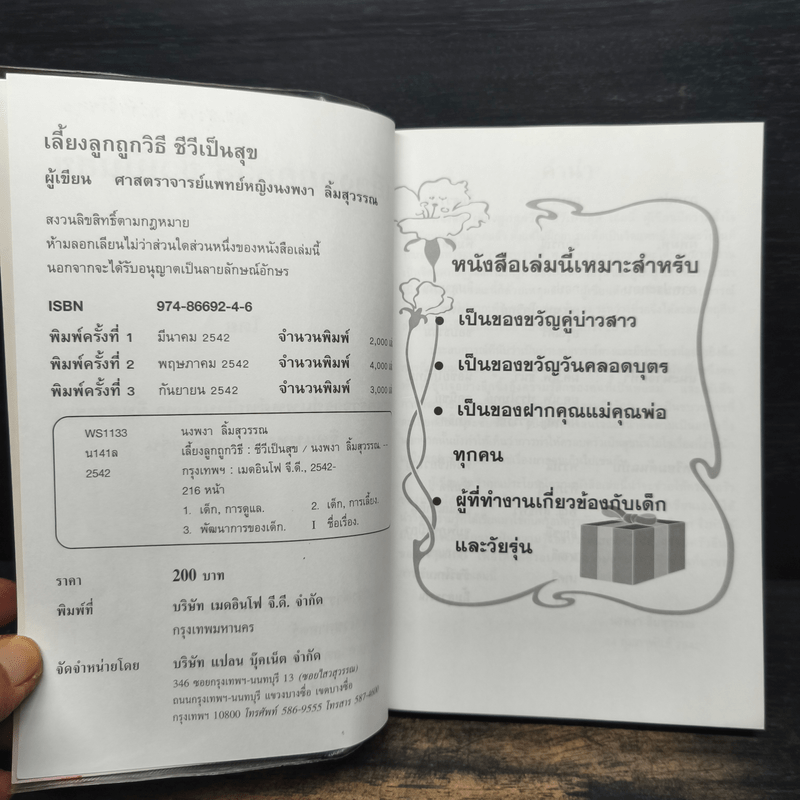 เลี้ยงลูกถูกวิธี ชีวีเป็นสุข
ผู้เขียน ศาสตราจารย์แพทย์หญิงนงพงา ลิ้มสุวรรณ
สงวนลิขสิทธิ์ตามกฎหมาย
ห้ามลอกเลียนไม่ว่าส่วนใดส่วนหนึ่งของหนังสือเล่มนี้
นอกจากจะได้รับอนุญาตเป็นลายลักษณ์อักษร
ISBN 974-86692-4-6
พิมพ์ครั้งที่ 1 มีนาคม 2542 จำนวนพิมพ์ 2,000
พิมพ์ครั้งที่ 2 พฤษภาคม 2542 จำนวนพิมพ์ 4,000
พิมพ์ครั้งที่ 3 กันยายน 2542 จำนวนพิมพ์ 3,000
WS1133 นงพงา ลิ้มสุวรรณ
น141ล เลี้ยงลูกถูกวิธี : ชีวีเป็นสุข / นงพงา ลิ้มสุวรรณ.--
2542 กรุงเทพฯ : เมดอินโฟ จี.ดี., 2542-
216 หน้า
1. เด็ก, การดูแล. 2. เด็ก, การเลี้ยง.
3. พัฒนาการของเด็ก. I ชื่อเรื่อง.
ราคา 200 บาท
พิมพ์ที่ บริษัท เมดอินโฟ จี.ดี. จำกัด
กรุงเทพมหานคร
จัดจำหน่ายโดย บริษัท แปลน บุ๊คเน็ต จำกัด
346 ซอยกรุงเทพฯ-นนทบุรี 13 (ซอยไสวสุวรรณ)
ถนนกรุงเทพฯ-นนทบุรี แขวงบางซื่อ เขตบางซื่อ
กรุงเทพฯ 10800 โทรศัพท์ 586-9555 โทรสาร
หนังสือเล่มนี้เหมาะสำหรับ
● เป็นของขวัญคู่บ่าวสาว
● เป็นของขวัญวันคลอดบุตร
● เป็นของฝากคุณแม่คุณพ่อ
ทุกคน
● ผู้ที่ทำงานเกี่ยวข้องกับเด็ก
และวัยรุ่น